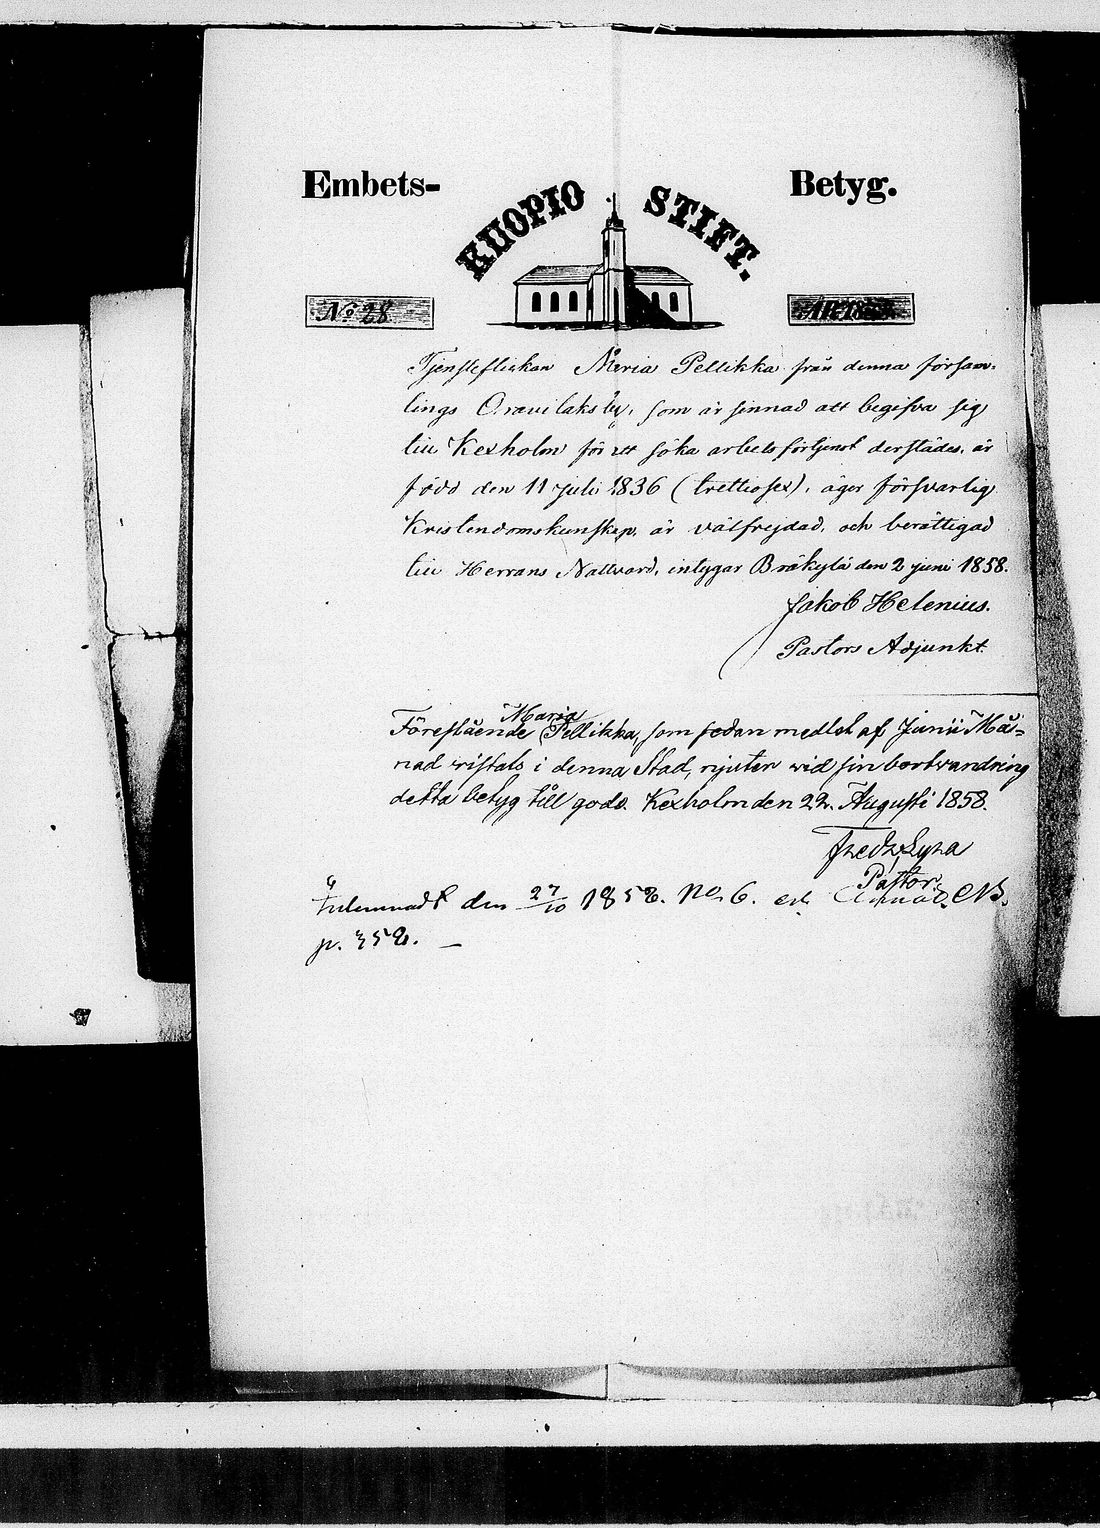 Embets-
KUOPIO STIFT.
Betyg.
No 28
Tjensteflickan Maria Pellikka från denna försam-
lings Oravilaks by, som är sinnad att begifva sig
till Kexholm för att söka arbetsförtjenst derstädes, är
född den 11 juli 1836 (trettiosex), äger försvarlig
Kristendomskunskap, är välfrejdad, och berättigad
till Herrans Nattvard, intygar Bräkylä den 2 juni 1858.
Jakob Helenius.
Pastors Adjunkt.
Maria
Förestående Pellikka, som sedan medlet af Junii Må-
nad vistats i denna Stad, njuter wid sin bortvandring
detta betyg till godo. Kexholm den 22. Augusti 1858.
Pastor.
den 27/10 1858. No 6.
p. 358.